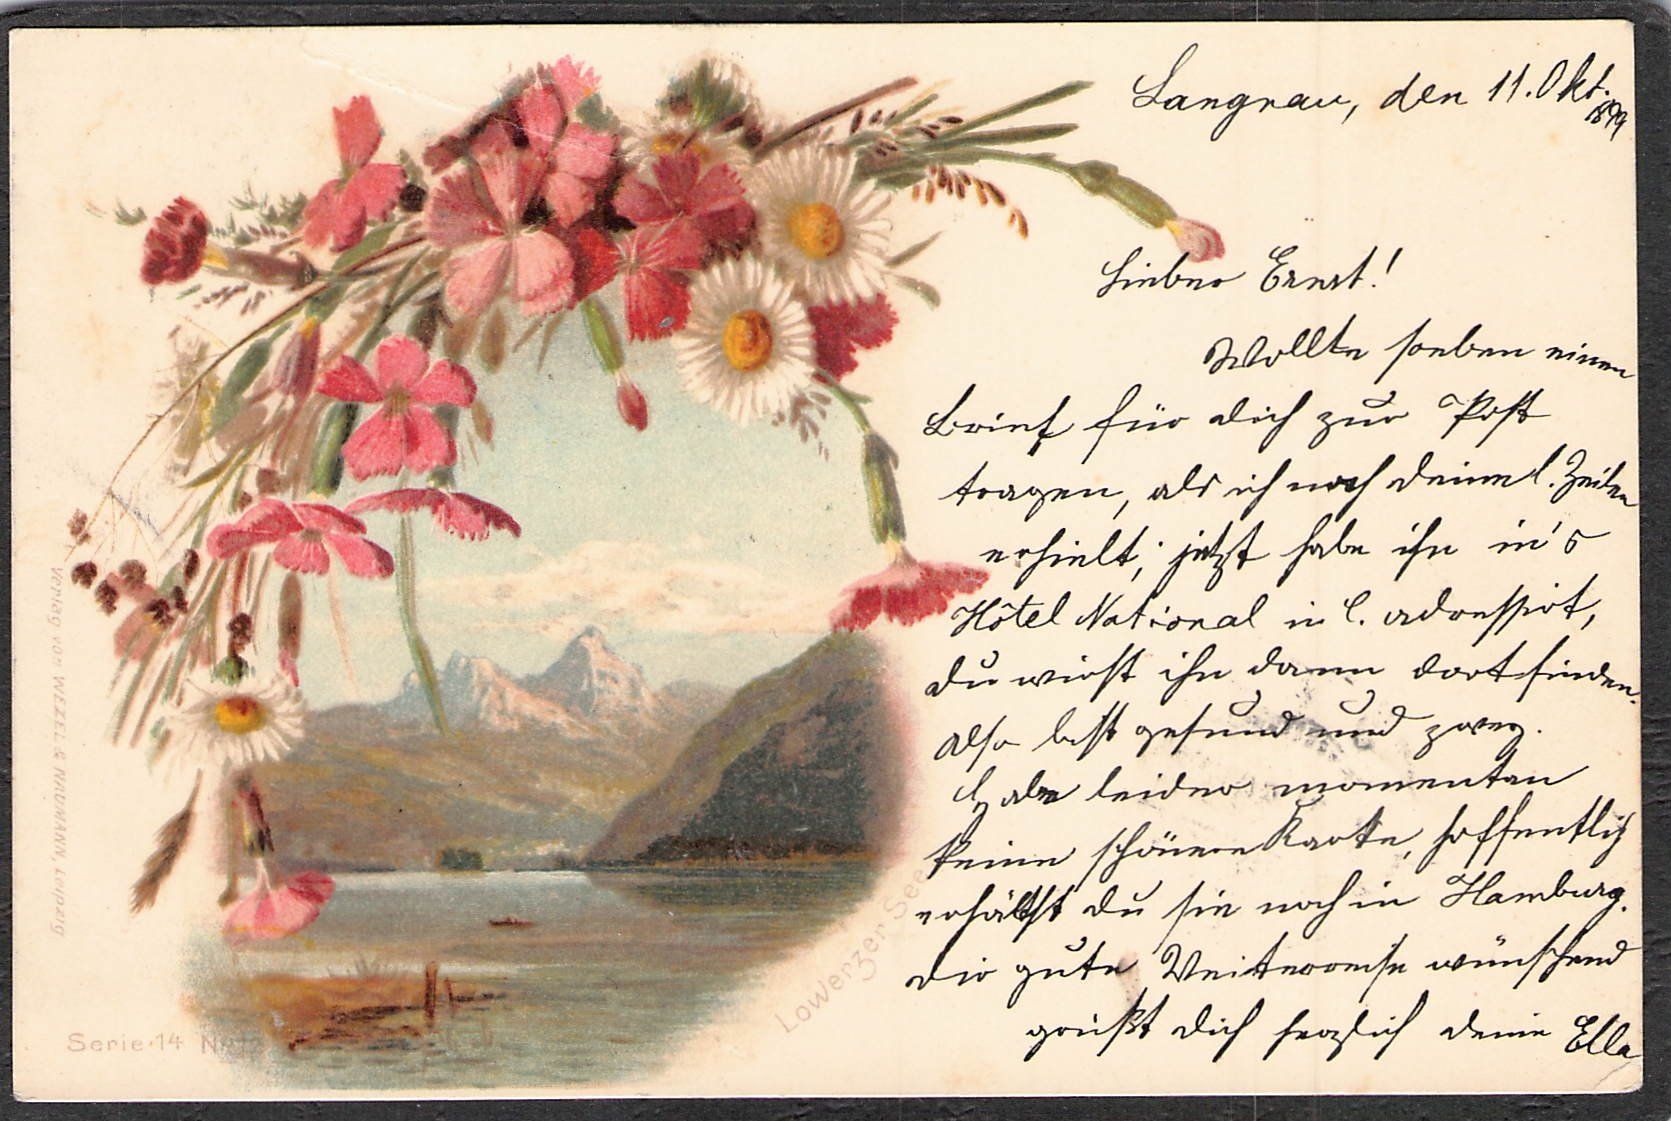 Langnau, den 11. Okt.
1899
Lieber Ernst!
Wollte soeben einen
Brief für dich zur Post
tragen, als ich noch deine l. Zeilen
erhielt; jetzt habe ihn in's
Hôtel National in L. adressirt,
du wirst ihn dann dort finden.
Also bist gesund und zweg.
Habe leider momentan
keine schönere Karte, hoffentlich
erhältst du sie noch in Hamburg.
Dir gute Weiterreise wünschend
grüßt dich herzlich deine Ella
Lowerzer See
Verlag von WEZEL & NAUMANN, Leipzig
Serie 14 No 12